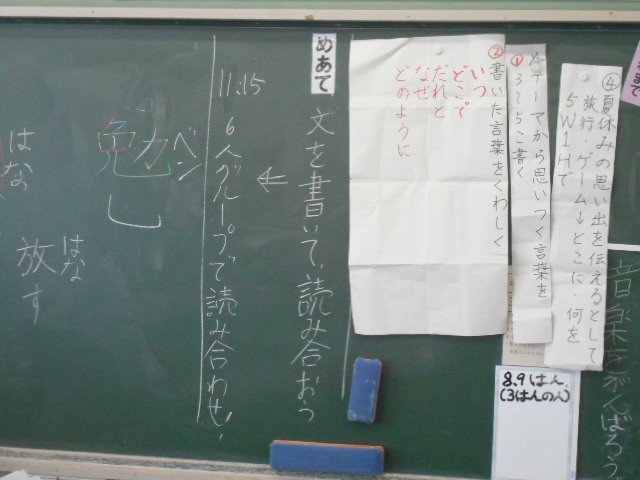 ④夏休みの思い出を伝えるとして
旅行・ゲーム↓どこに・何を
5W1Hで
メテーマから思いつく言葉を
①3〜5こ書く
②書いた言葉をくわしく
いつ
どこで
だれと
なぜ
どのように
音楽をがんばろう
8.9はん
(3はんのん)
めあて
文を書いて、読み合おう
←
11:15
6人グループで読み合わせ
ベン
勉
はな
放す
はな
まで